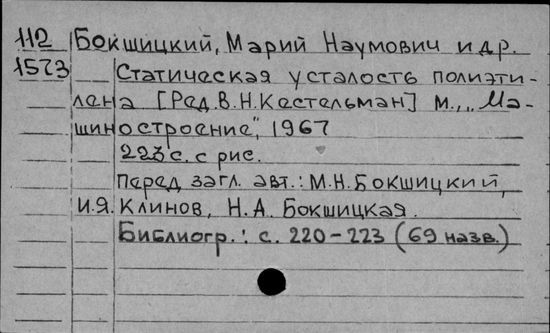 112 Бокшицкий, Марий Наумович и др.
1573 Статическая усталость полиэти-
лена [Ред. В.Н. Кестельман] М., "Ма-
шиностроение", 1967
223 с. с рис.
Перед загл. авт.: М.Н. Бокшицкий,
И.Я. Клинов, Н.А. Бокшицкая.
Библиогр.: с. 220-223 (69 назв.)